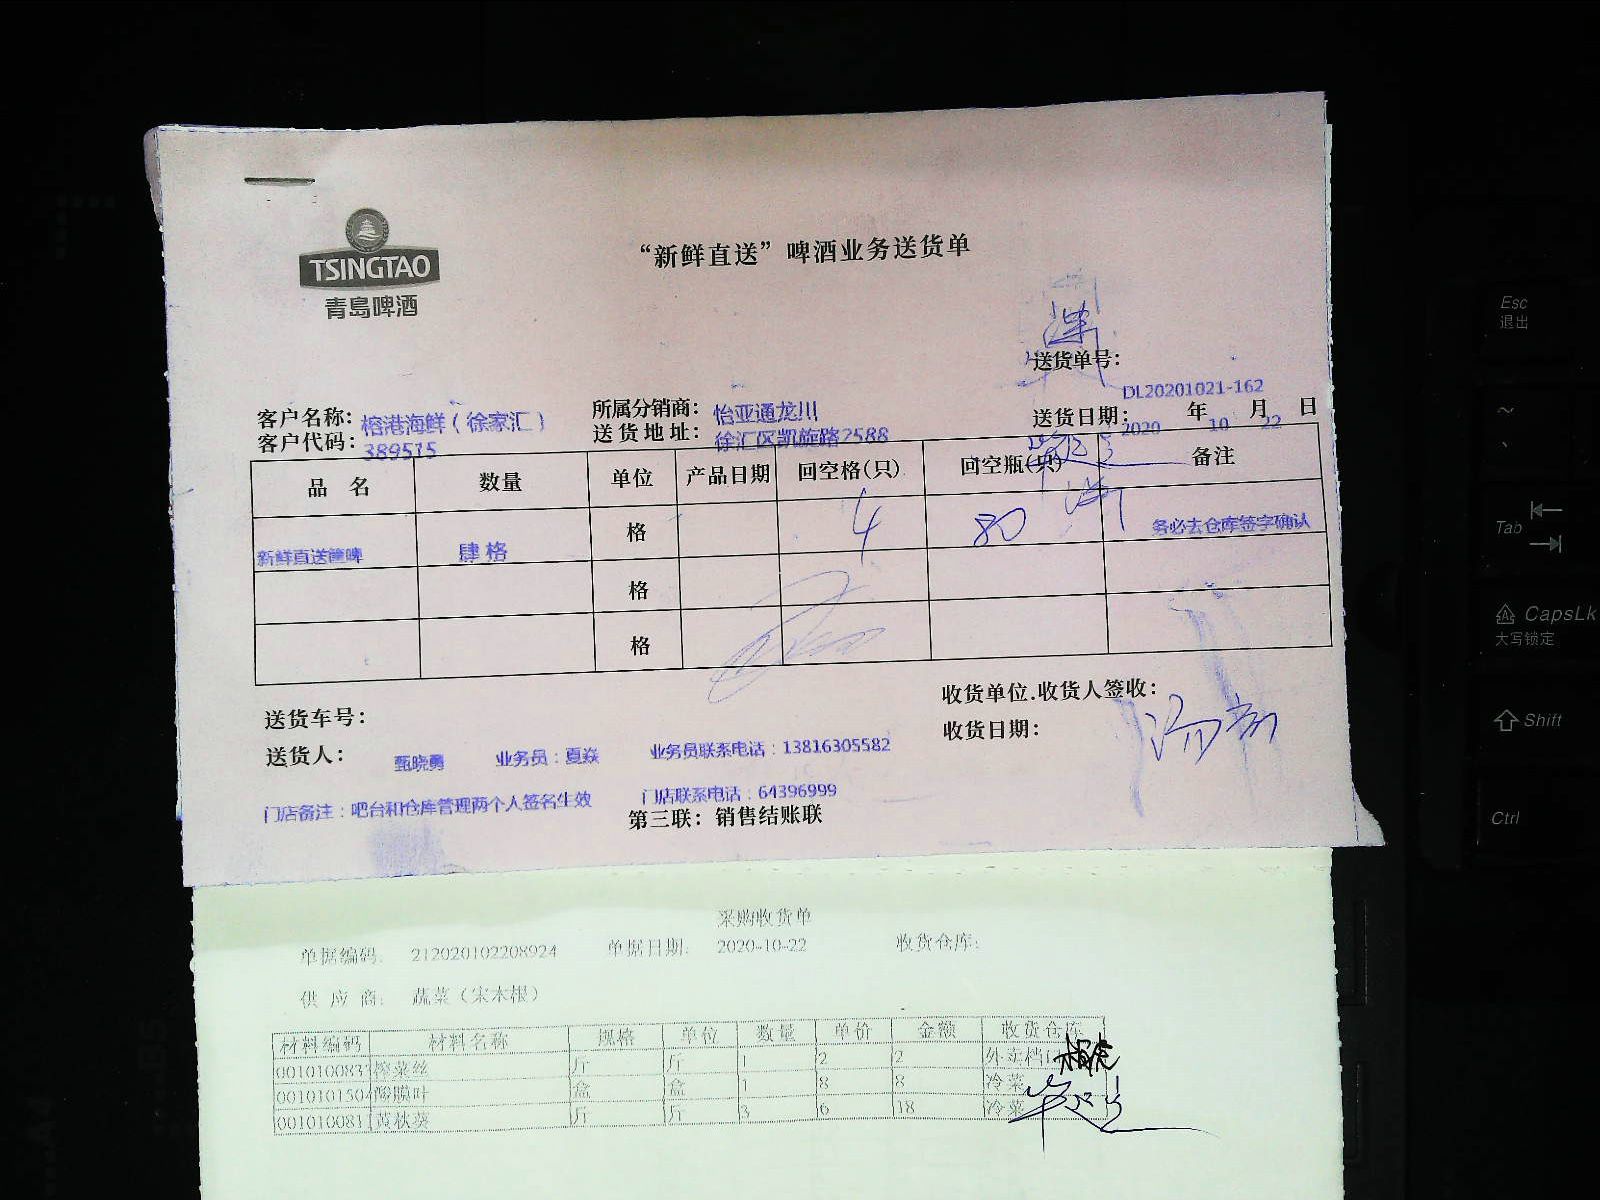 TSINGTAO
青島啤酒
“新鲜直送”啤酒业务送货单
送货单号：
DL20201021-162
客户名称：榕港海鲜（徐家汇） 所属分销商：怡亚通龙川 送货日期：2020 年 10 月 22 日
客户代码：389515 送货地址：徐汇区凯旋路2588
品 名 数量 单位 产品日期 回空格(只) 回空瓶(只) 备注
新鲜直送 肆格 格 4 80 务必去仓库签字确认
格
格
收货单位.收货人签收：
送货车号： 收货日期：
送货人：甄晓勇 业务员：夏焱 业务员联系电话：13816305582
门店备注：吧台和仓库管理两个人签名生效 门店联系电话：64396999
第三联：销售结账联
采购收货单
单据编码： 212020102208924 单据日期： 2020-10-22 收货仓库：
供 应 商： 蔬菜（宋木根）
材料编码 材料名称 规格 单位 数量 单价 金额 收货仓库
001010083 榨菜丝 斤 斤 1 2 2 外卖档口
0010101504 酸膜叶 盒 盒 1 8 8 冷菜
001010081 黄秋葵 斤 斤 3 6 18 冷菜
Esc
退出
~
Tab
CapsLk
大写锁定
Shift
Ctrl